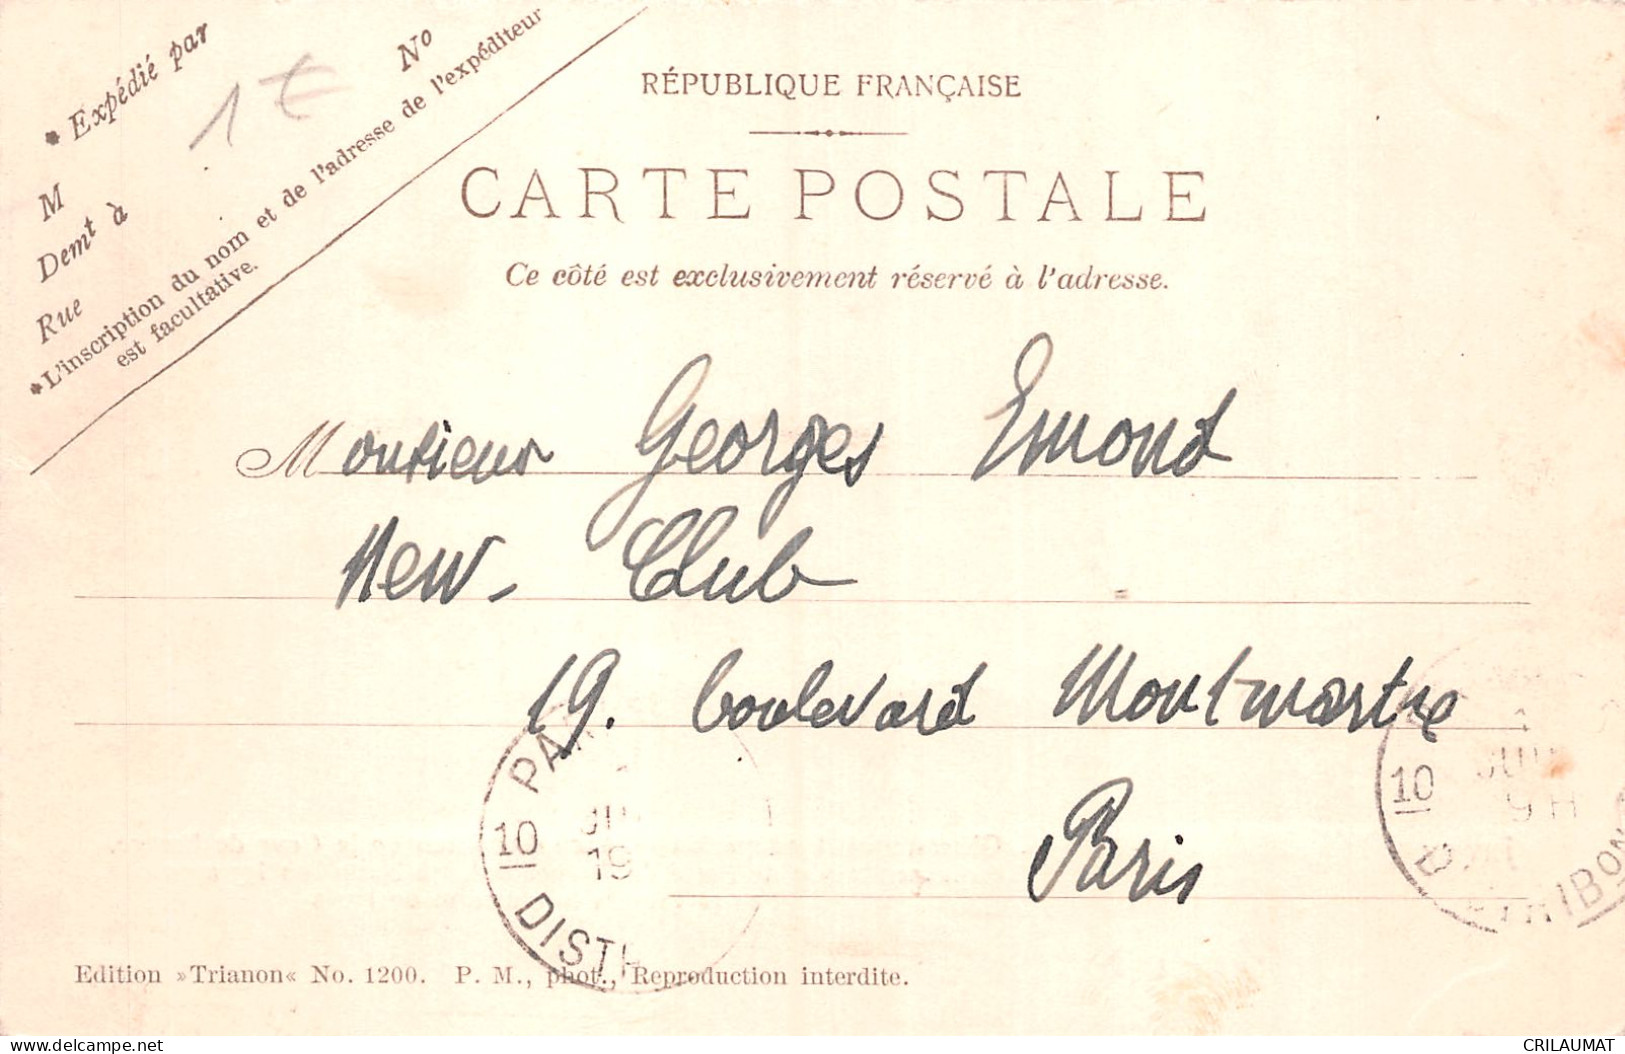 * Expédié par
1 €
M
Nº
Demt à
Rue
*L'inscription du nom et de l'adresse de l'expéditeur
est facultative.
RÉPUBLIQUE FRANÇAISE
CARTE POSTALE
Ce côté est exclusivement réservé à l'adresse.
Monsieur Georges Emond
New-Club
19. boulevard Montmartre
Paris
10
DISTR
19
10
9H
Edition »Trianon« No. 1200. P. M., phot., Reproduction interdite.
delcampe.net
CRILAUMAT